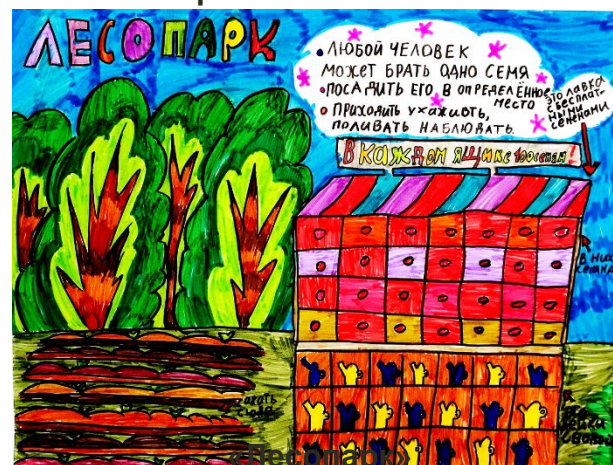 ЛЕСОПАРК
• ЛЮБОЙ ЧЕЛОВЕК
МОЖЕТ БРАТЬ ОДНО СЕМЯ
• ПОСАДИТЬ ЕГО В ОПРЕДЕЛЁННОЕ
МЕСТО
• ПРИХОДИТЬ УХАЖИВТЬ,
ПОЛИВАТЬ НАБЛЮВАТЬ.
ЭТО ЛАВКА
С БЕСПЛАТ-
НЫМИ
СЕМЕНАМИ
В КАЖДОМ ЯЩИКЕ 100 СЕМЯН!
В НИХ
СЮДА
«Лесопарк»